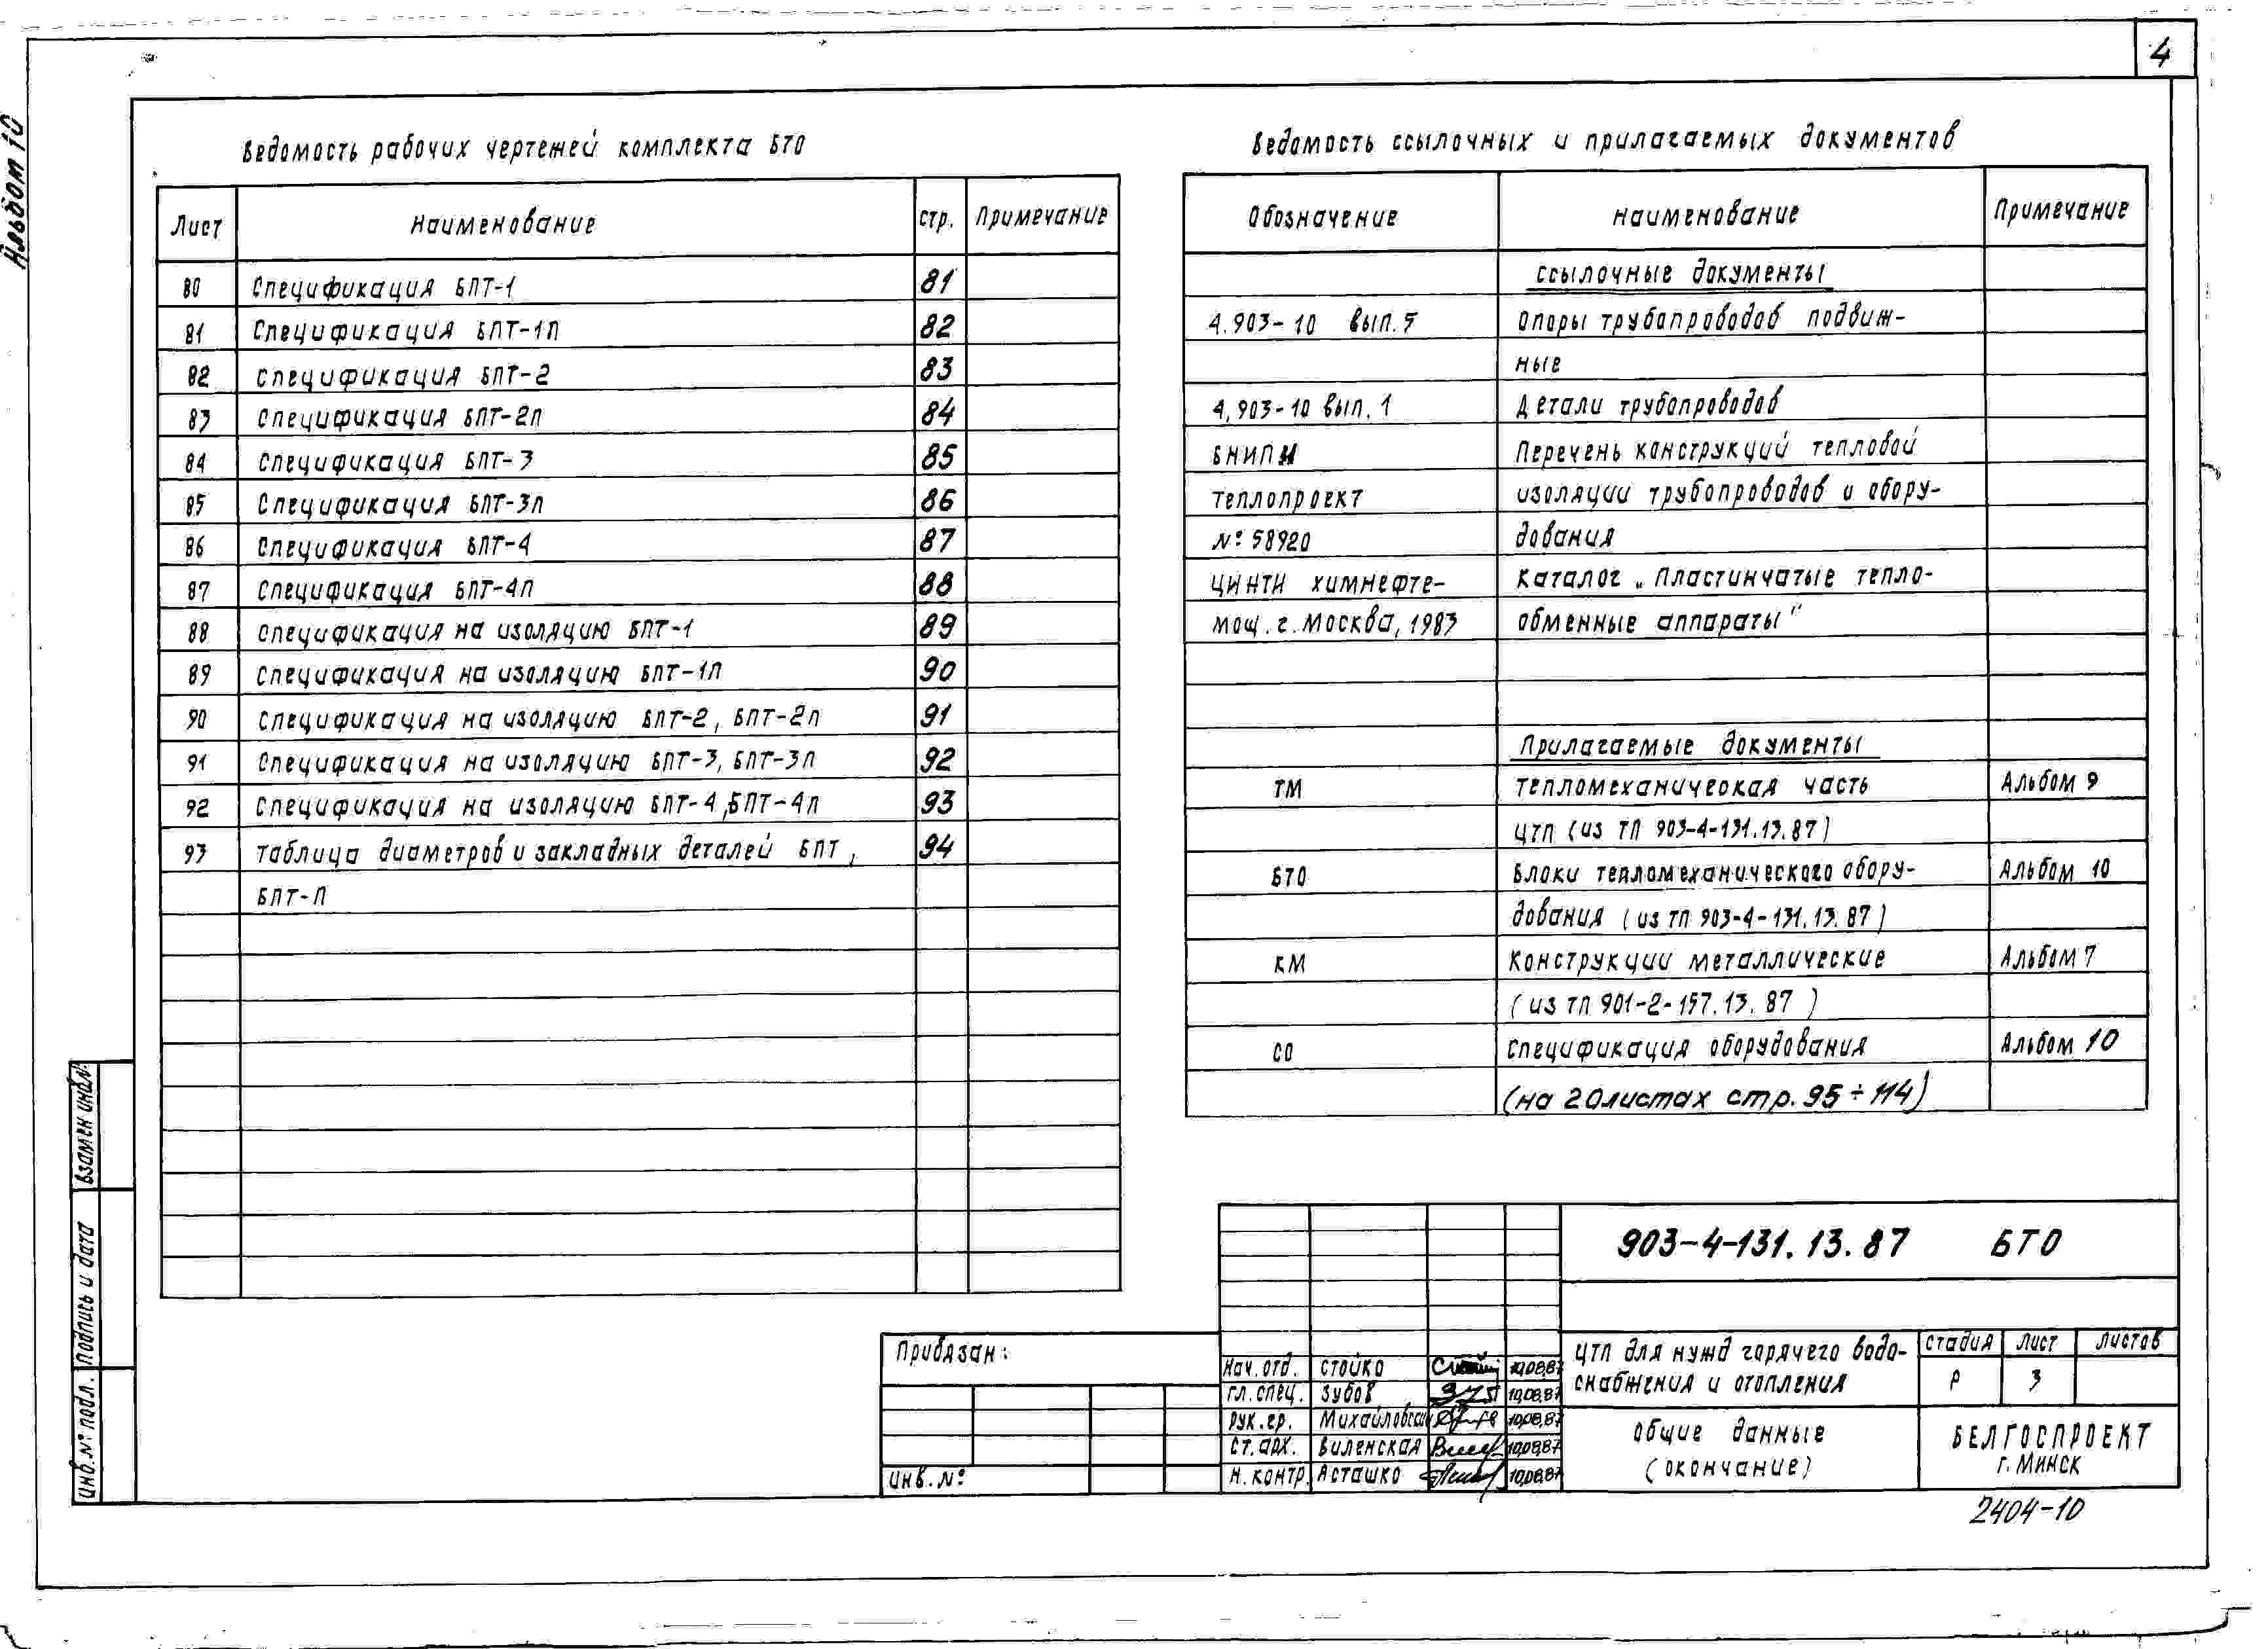 4
Альбом 10
Ведомость рабочих чертежей комплекта БТО
Лист Наименование стр. Примечание
80 Спецификация БПТ-1 81
81 Спецификация БПТ-1П 82
82 Спецификация БПТ-2 83
83 Спецификация БПТ-2п 84
84 Спецификация БПТ-3 85
85 Спецификация БПТ-3п 86
86 Спецификация БПТ-4 87
87 Спецификация БПТ-4П 88
88 Спецификация на изоляцию БПТ-1 89
89 Спецификация на изоляцию БПТ-1П 90
90 Спецификация на изоляцию БПТ-2, БПТ-2п 91
91 Спецификация на изоляцию БПТ-3, БПТ-3п 92
92 Спецификация на изоляцию БПТ-4, БПТ-4п 93
93 Таблица диаметров и закладных деталей БПТ, 94
БПТ-П
Ведомость ссылочных и прилагаемых документов
Обозначение Наименование Примечание
Ссылочные документы
4.903-10 вып.5 Опоры трубопроводов подвиж-
ные
4.903-10 вып.1 Детали трубопроводов
ВНИПИ Перечень конструкций тепловой
теплопроект изоляции трубопроводов и обору-
№ 58920 дования
ЦИНТИ химнефте- Каталог „Пластинчатые тепло-
мош. г. Москва, 1983 обменные аппараты"
Прилагаемые документы
ТМ Тепломеханическая часть Альбом 9
ЦТП (из ТП 903-4-131.13.87)
БТО Блоки тепломеханического обору- Альбом 10
дования (из ТП 903-4-131.13.87)
КМ Конструкции металлические Альбом 7
(из ТП 901-2-157.13.87)
СО Спецификация оборудования Альбом 10
(на 20 листах стр. 95÷114)
Взамен инв.№
Подпись и дата
Инв.№ подл.
Привязан:
Инв.№
903-4-131.13.87 БТО
Нач. отд. Стойко 10.08.87
Гл. спец. Зубов 10.08.87
Рук. гр. Михайловская 10.08.87
Ст. арх. Виленская 10.08.87
Н. контр. Асташко 10.08.87
ЦТП для нужд горячего водо-
снабжения и отопления
Стадия Лист Листов
Р 3
Общие данные
(окончание)
БЕЛГОСПРОЕКТ
г. Минск
2404-10